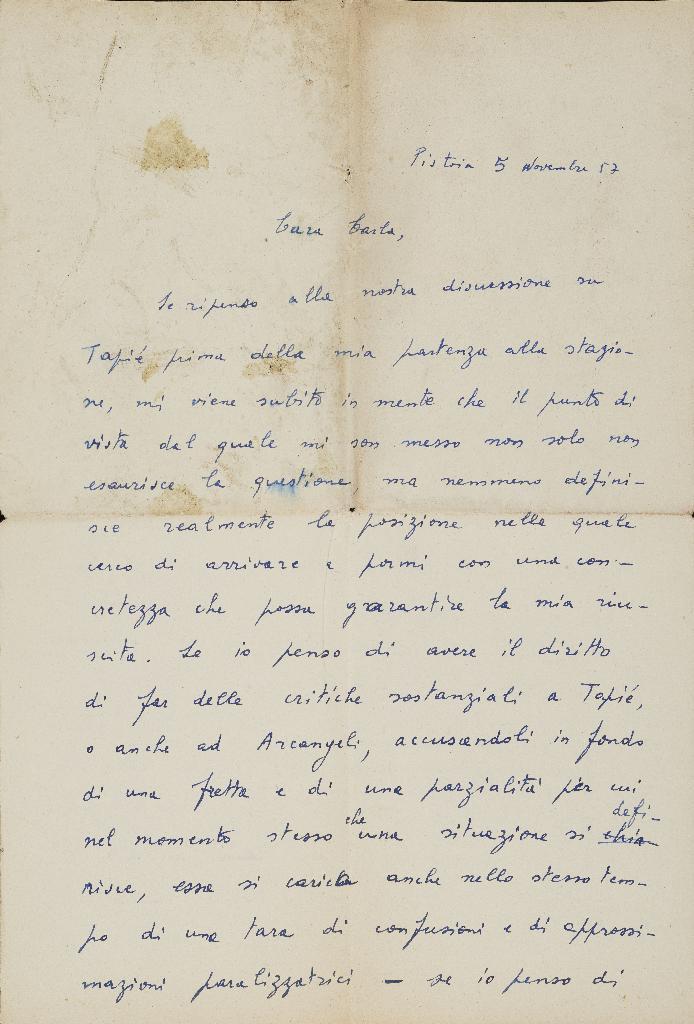 Pistoia 5 Novembre 57
Cara Carla,
Se ripenso alla nostra discussione su
Tapié prima della mia partenza alla stazio-
ne, mi viene subito in mente che il punto di
vista dal quale mi son messo non solo non
esaurisce la questione, ma nemmeno defini-
sce realmente la posizione nella quale
cerco di arrivare a pormi con una con-
cretezza che possa garantire la mia riu-
scita. Se io penso di avere il diritto
di far delle critiche sostanziali a Tapié,
o anche ad Arcangeli, accusandoli in fondo
di una fretta e di una parzialità per cui
nel momento stesso che una situazione si chia- defi-
nisce, essa si carica anche nello stesso tem-
po di una tara di confusioni e di approssi-
mazioni paralizzatrici — se io penso di